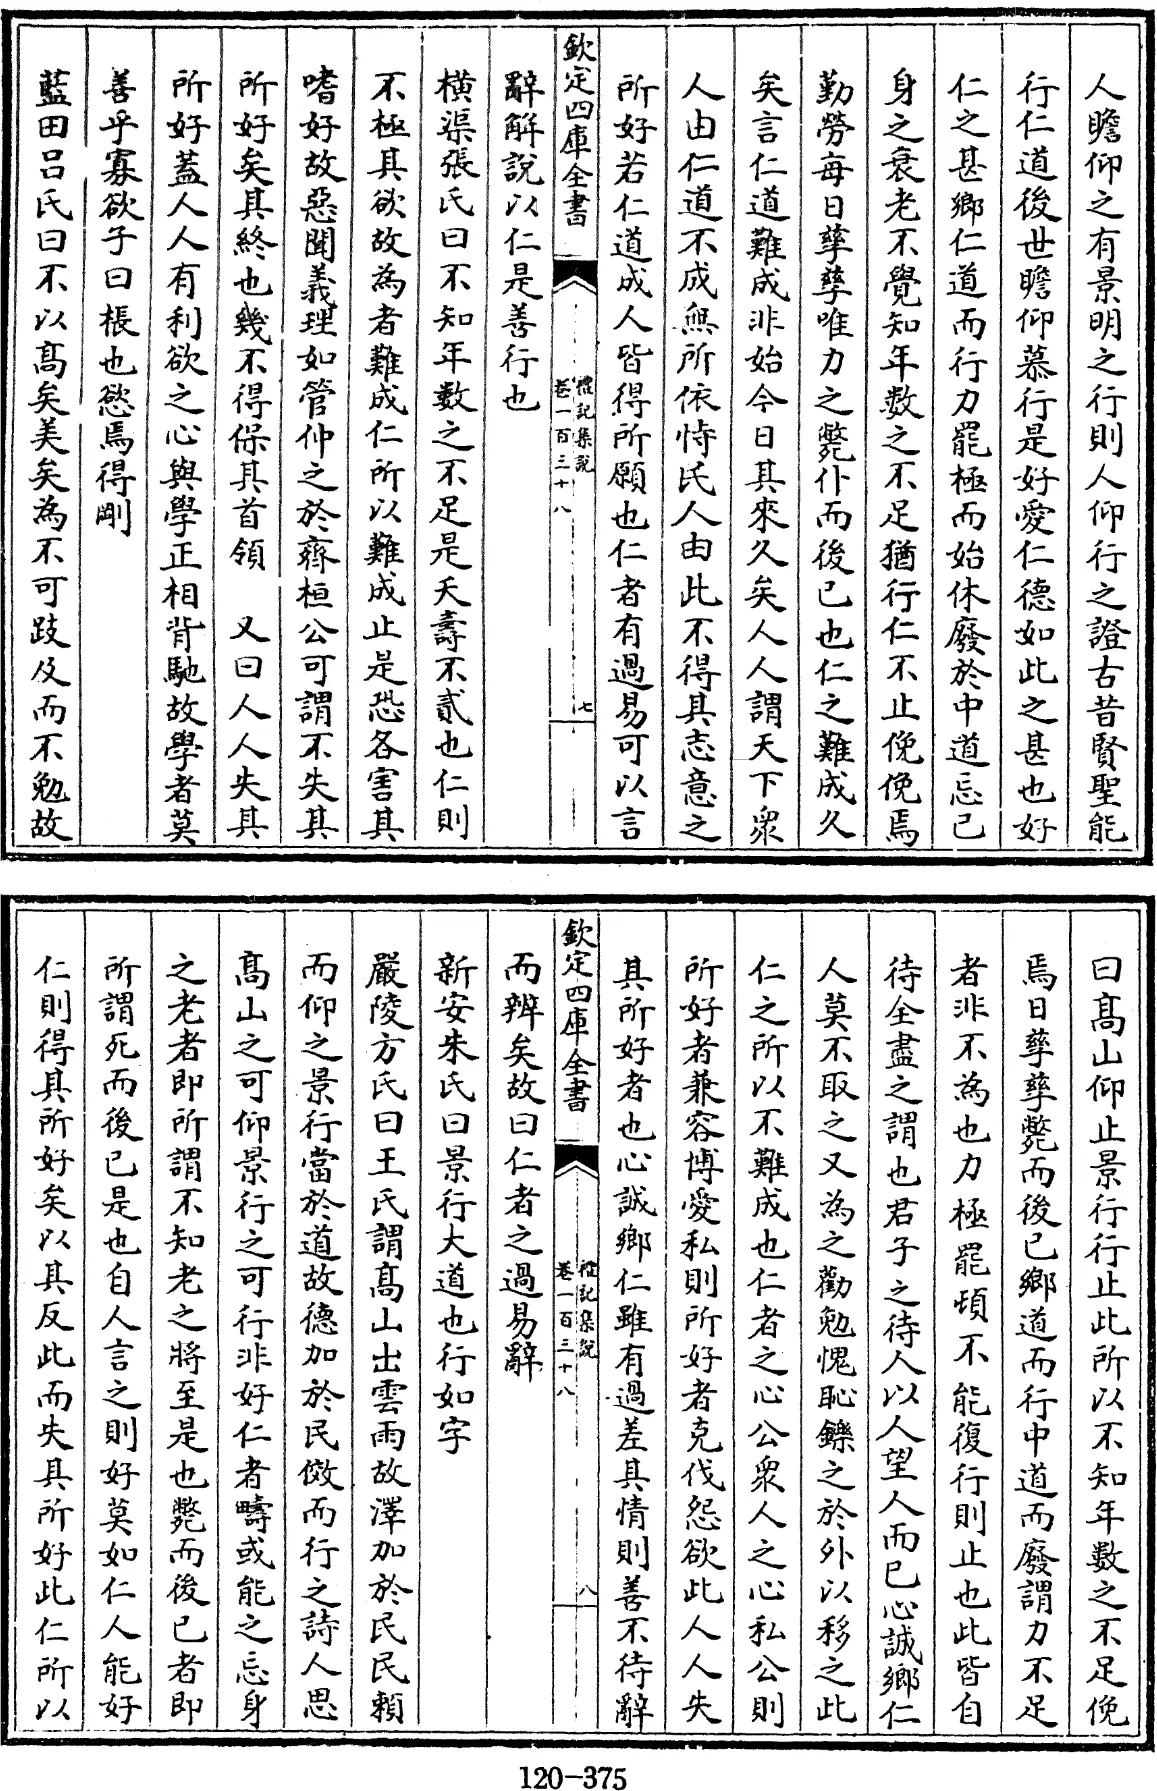 人瞻仰之有景明之行則人仰行之證古昔賢聖能
行仁道後世瞻仰慕行是好愛仁德如此之甚也好
仁之甚鄉仁道而行力罷極而始休廢於中道忘己
身之衰老不覺知年數之不足猶行仁不止俛俛焉
勤勞每日孳孳唯力之斃仆而後已也仁之難成久
矣言仁道難成非始今日其來久矣人人謂天下衆
人由仁道不成無所依恃民人由此不得其志意之
所好若仁道成人皆得所願也仁者有過易可以言
欽定四庫全書
禮記集說
卷一百三十八
七
辭解說以仁是善行也
橫渠張氏曰不知年數之不足是夭壽不貳也仁則
不極其欲故為者難成仁所以難成止是恐各害其
嗜好故惡聞義理如管仲之於齊桓公可謂不失其
所好矣其終也幾不得保其首領 又曰人人失其
所好蓋人人有利欲之心與學正相背馳故學者莫
善乎寡欲子曰棖也慾焉得剛
藍田吕氏曰不以髙矣美矣為不可跂及而不勉故
曰髙山仰止景行行止此所以不知年數之不足俛
焉日孳孳斃而後已鄉道而行中道而廢謂力不足
者非不為也力極罷頓不能復行則止也此皆自
待全盡之謂也君子之待人以人望人而已心誠鄉仁
人莫不取之又為之勸勉愧恥鑠之於外以移之此
仁之所以不難成也仁者之心公衆人之心私公則
所好者兼容博愛私則所好者克伐怨欲此人人失
其所好者也心誠鄉仁雖有過差其情則善不待辭
欽定四庫全書
禮記集說
卷一百三十八
八
而辨矣故曰仁者之過易辭
新安朱氏曰景行大道也行如字
嚴陵方氏曰王氏謂髙山出雲雨故澤加於民民賴
而仰之景行當於道故德加於民傚而行之詩人思
髙山之可仰景行之可行非好仁者疇或能之忘身
之老者即所謂不知老之將至是也斃而後已者即
所謂死而後已是也自人言之則好莫如仁人能好
仁則得其所好矣以其反此而失其所好此仁所以
120-375